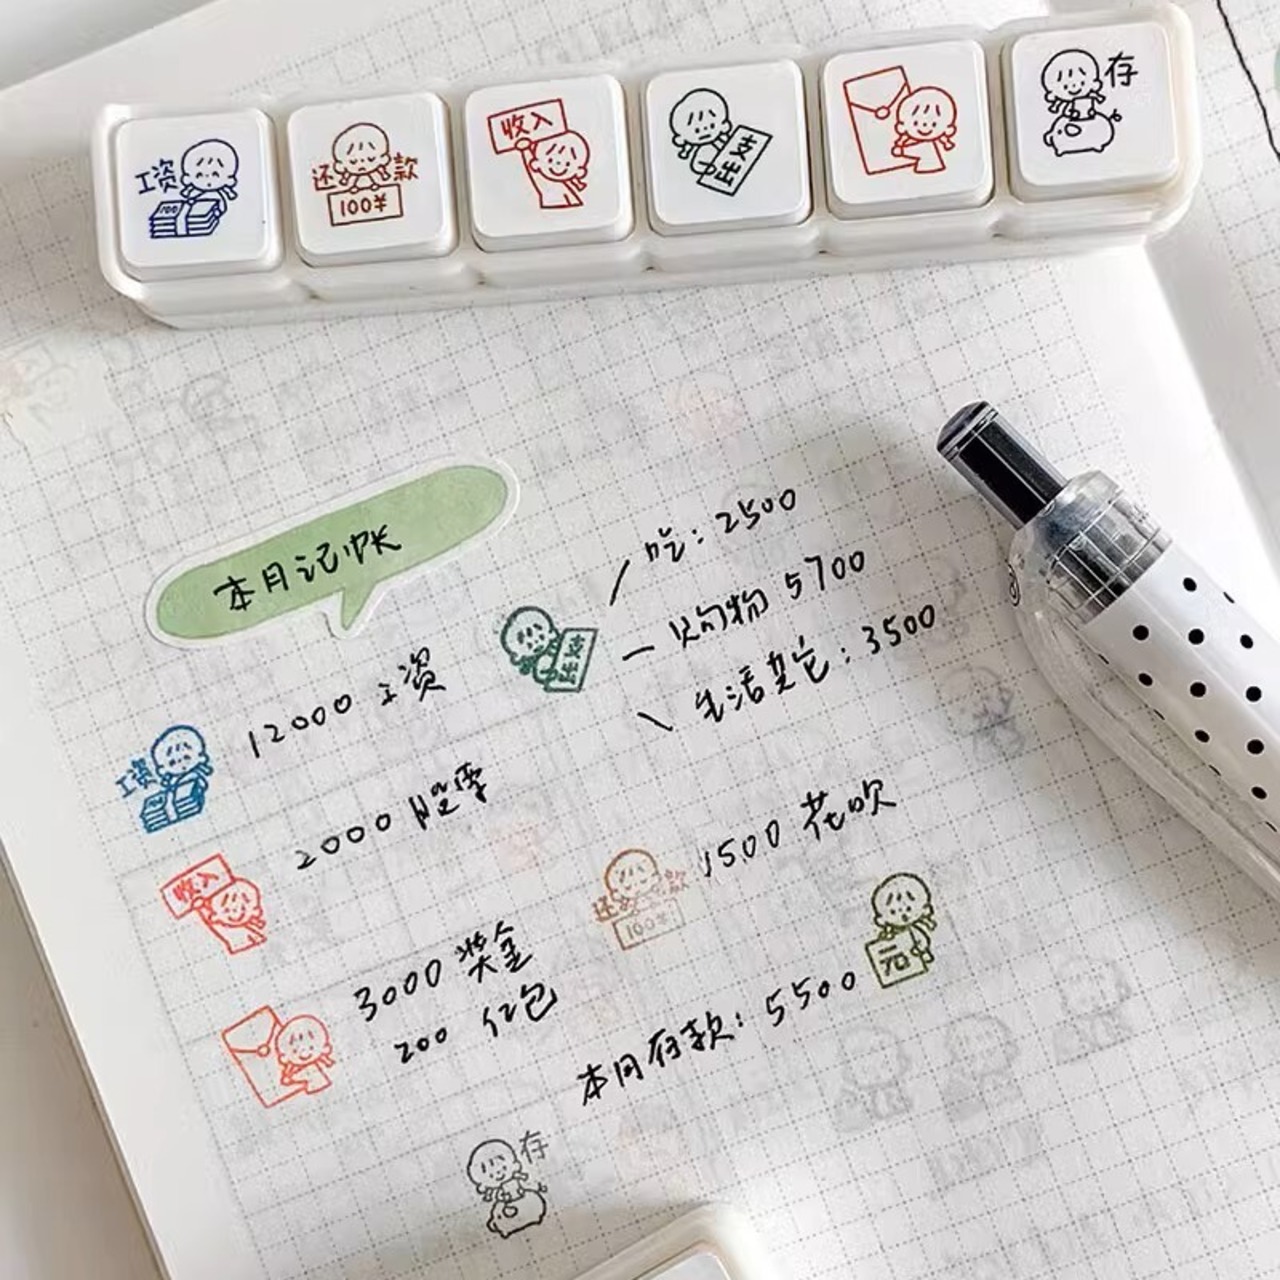 工资
100
还款
100¥
收入
支出
存
本月记帐
吃：2500
购物 5700
生活其它：3500
支出
12000 工资
工资
2000 股票
收入
1500 花呗
还款
100¥
3000 奖金
200 红包
元
本月存款：5500
存